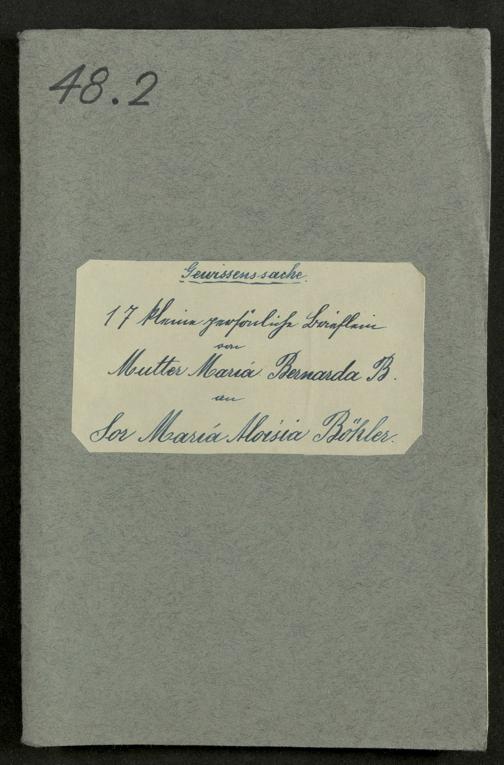 48.2
Gewissenssache.
17 kleine persönliche Brieflein
von
Mutter María Bernarda B.
an
Sor María Aloisia Böhler.